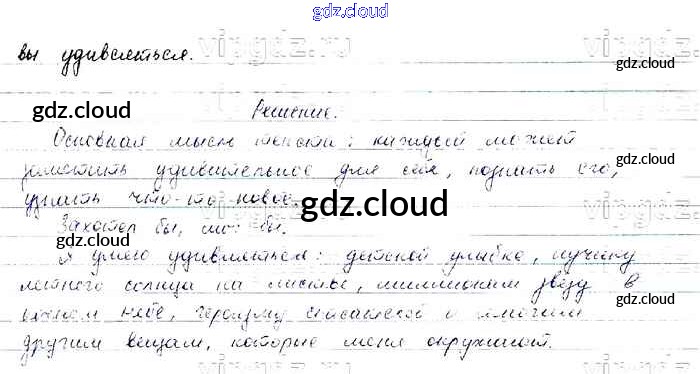 gdz.cloud
gdz.cloud
вы удивляться.
gdz.cloud
gdz.cloud
Решение.
gdz.cloud
Основная мысль текста: каждый может
заметить удивительное для себя, познать его,
узнать что-то новое.
gdz.cloud
gdz.cloud
Захотел бы, бы.
Я умею удивляться: детской улыбке, лучику
летнего солнца на листве, миллионам звёзд в
gdz.cloud
небе, героизму и многим
другим вещам, которые меня окружают.
gdz.cloud